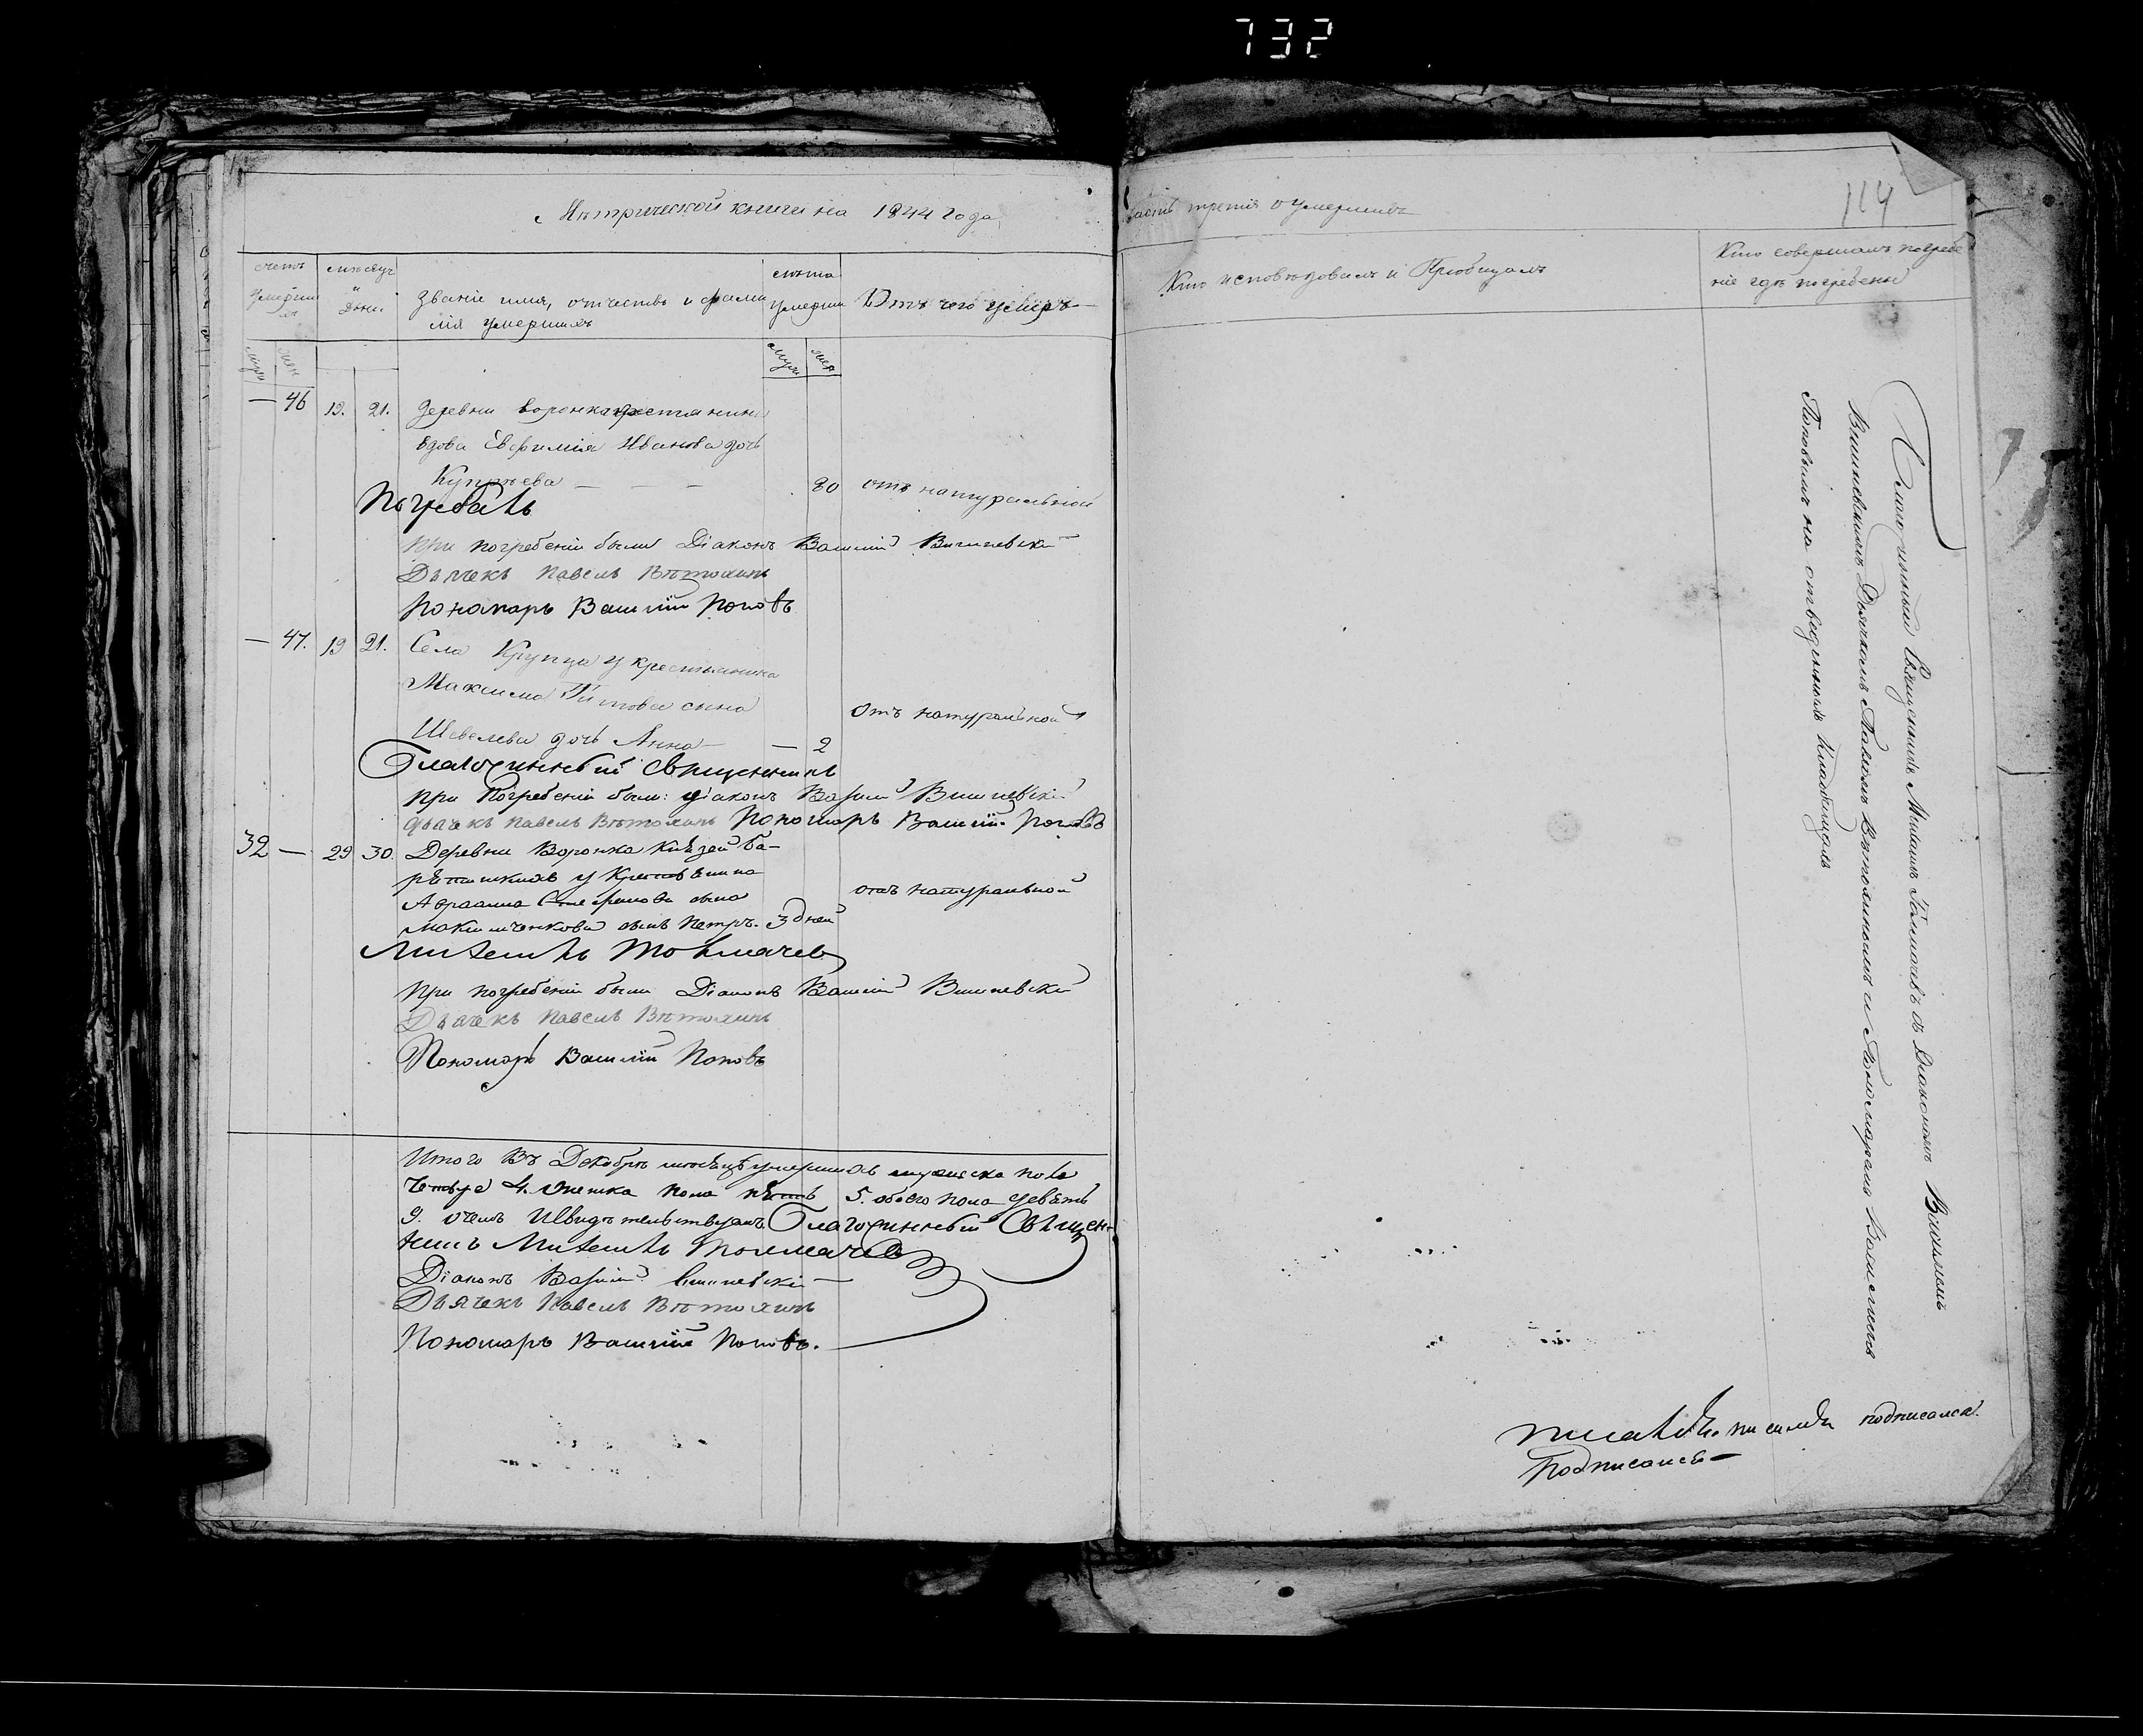 732
Метрической книги на 1844 года
часть третія о умершихъ
114
счетъ умерших
мѣсяцъ и Дни.
званіе имя, отчество и фамилія умершихъ
лѣта умерши
Отъ чего умеръ
Кто исповѣдовалъ и Пріобщалъ
Кто совершалъ погребеніе гдѣ погребены
муж
жен
муж
жен
— 46 19. 21. деревни воронка
вдова Евфимія Иванова дочь
80 отъ натуральной
Погребалъ
При погребеніи были Діаконъ Василій Вишневскій
Дьячекъ Павелъ Вѣтохинъ
Пономарь Василій Поповъ
— 47. 19 21. Села Крупца у крестьянина
Максима Титова сына
Шевелева дочь Анна — — 2 Отъ натуральной
Благочинный Священникъ
при Погребеніи были: діаконъ Василій Вишневскій
дьячекъ Павелъ Вѣтохинъ Пономарь Василій Поповъ
32 — 29 30. Деревни Воронка Князей Ба-
рятинскихъ у Крестьянина
Авраама Стефанова сына
сынъ Петръ. 3 дней отъ натуральной
Михаилъ Толмачев
При погребеніи были Діаконъ Василій Вишневскій
Дьячекъ Павелъ Вѣтохинъ
Пономарь Василій Поповъ
Итого Въ Декабрѣ мѣсяцѣ умершихъ мужеска пола
4. женска пола пять 5. обоего пола девять
9. о чемъ Благочинный Священ-
никъ Михаилъ Толмачев
Діаконъ Василій Вишневскій
Дьячекъ Павелъ Вѣтохинъ
Пономарь Василій Поповъ.
Благочинный Священникъ Михаилъ Толмачевъ съ Діакономъ Василіемъ
Вишневскимъ Дьячкомъ Павломъ Вѣтохинымъ и Пономаремъ Василіемъ
Поповымъ на отведенномъ кладбищѣ
подписался.
Подписался